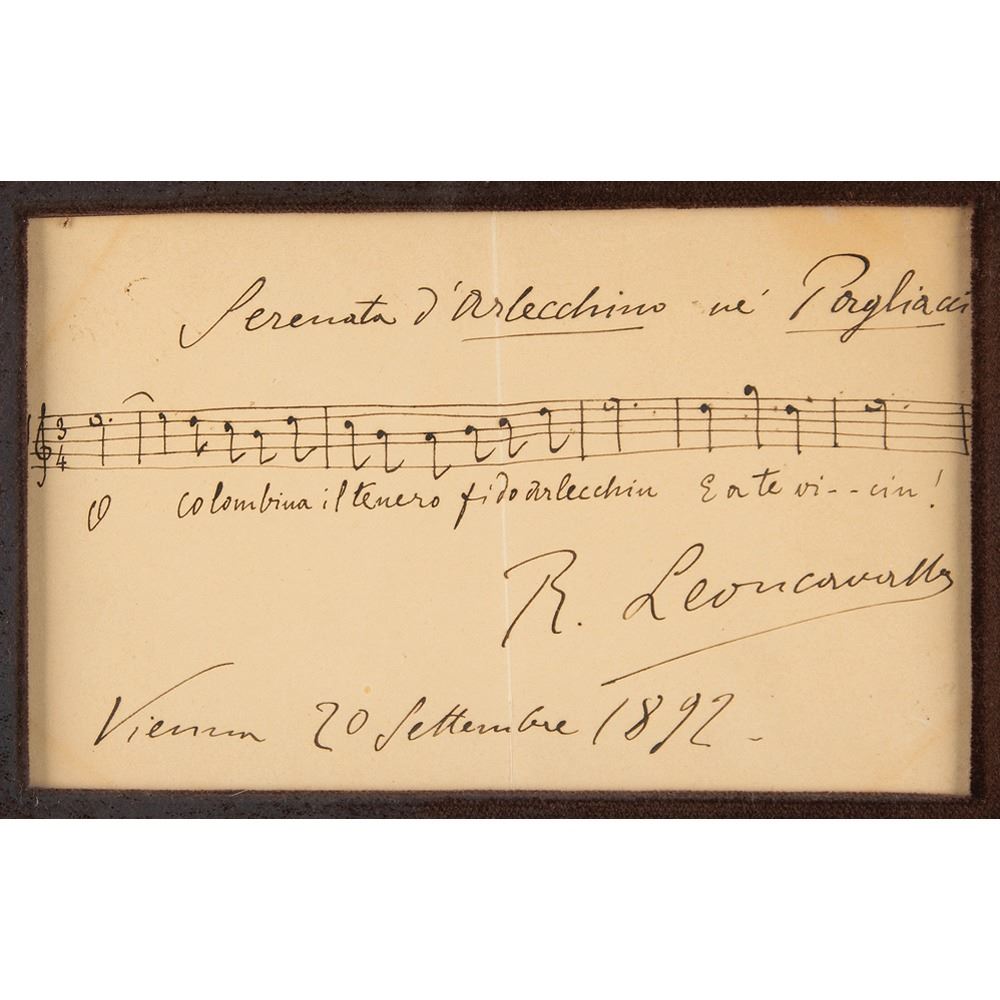 Serenata d'Arlecchino ne' Pagliacci
3
4
O colombina il tenero fido arlecchin E a te vi--cin!
R. Leoncavallo
Vienna 20 Settembre 1892 -